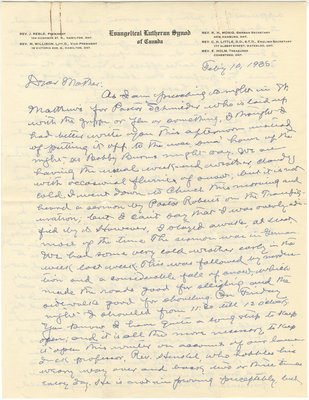 REV. J. REBLE, PRESIDENT
HAMILTON, ONT.
REV. N. WILLISON, LITT.D., VICE PRESIDENT
HAMILTON, ONT.
Evangelical Lutheran Synod
of Canada
REV. GERMAN SECRETARY
ONT.
REV. C. H. LITTLE, D.D., S.T.D., ENGLISH SECRETARY
ALBERT STREET, WATERLOO, ONT.
REV. E. HOLM, TREASURER
ONT.
Feb'y 10, 1935.
Dear Mother:
As I am preaching tonight in St
Matthews for Pastor Schmieder who is laid up
with the grippe or flu or something, I thought I
had better write you this afternoon instead
of putting it off to the wee sma' hours of the
night as Bobby Burns might say. We are
having the usual weekend weather cloudy
with occasional flurries of snow, but it is not
cold. I went down to Church this morning and
heard a sermon by Pastor Roberts on the Transfig-
uration, but I can't say that I was overly edi-
fied by it. However, I stayed awake at least
most of the time. The sermon was in German.
We had some very cold weather early in the
week last week. This was followed by
and a considerable fall of snow, which
made the roads good for sleighing and the
sidewalks good for shoveling. On Friday
night I shoveled from 11:30 till 12 o'clock.
You know I have quite a long strip to keep
open, and it is all the more necessary to keep
it open this winter on account of our lame
duck professor, Rev. Henkel, who hobbles his
weary way over and back two or three times
every day. He is improving perceptibly, but